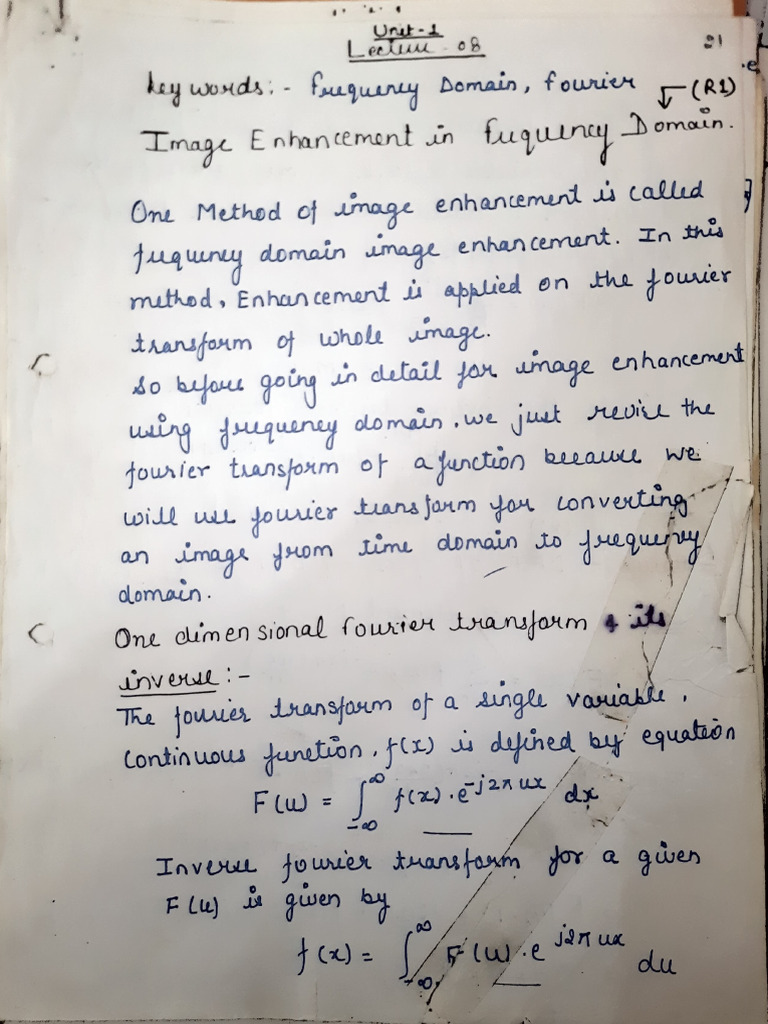 Unit-1
Lecture-08
21
Key words:- Frequency Domain, Fourier
(R1)
Image Enhancement in Frequency Domain.
One Method of image enhancement is called
frequency domain image enhancement. In this
method, Enhancement is applied on the fourier
transform of whole image.
So before going in detail for image enhancement
using frequency domain, we just revise the
fourier transform of a function because we
will use fourier transform for converting
an image from time domain to frequency
domain.
One dimensional Fourier transform & its
inverse:-
The fourier transform of a single variable,
continuous function, f(x) is defined by equation
F(u) = ∫_{-∞}^{∞} f(x)·e^{-j2πux} dx
Inverse fourier transform for a given
F(u) is given by
f(x) = ∫_{-∞}^{∞} F(u)·e^{j2πux} du